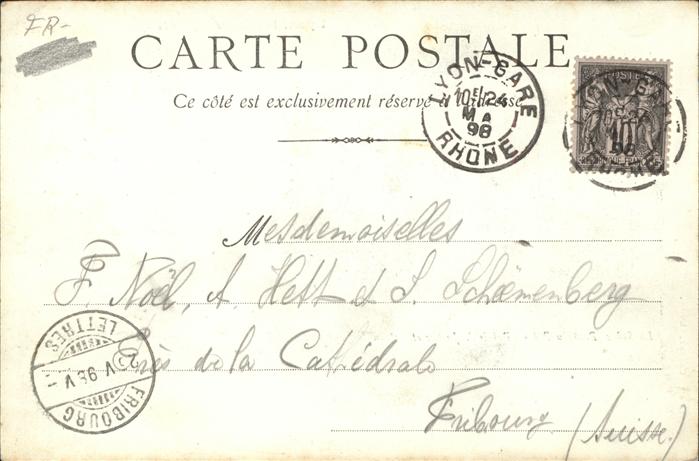 FR-
CARTE POSTALE
Ce côté est exclusivement réservé à l'adresse
LYON-GARE
10E/24
MA
98
RHONE
POSTE
10
Mesdemoiselles
F. Noël, A. Hett & S. Schœmenberg
Près de la Cathédrale
Fribourg (Suisse.)
FRIBOURG
LETTRES
V 98 V